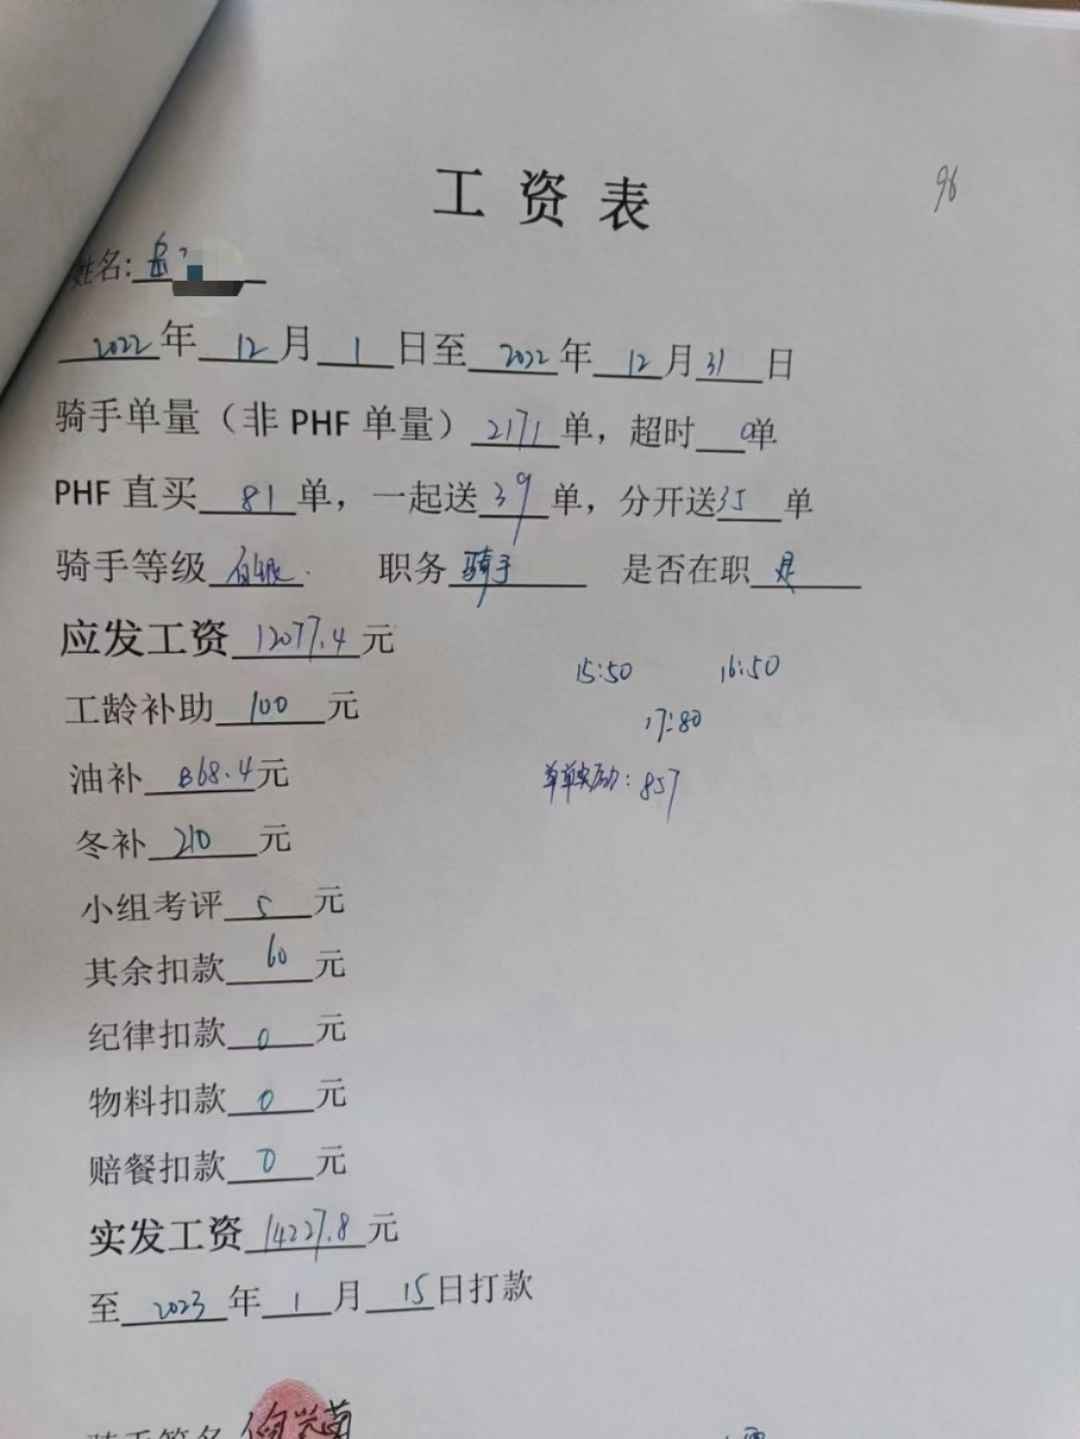 工资表
96
姓名:岳
2022年12月1日至2022年12月31日
骑手单量（非PHF单量）2171单，超时0单
PHF直买81单，一起送39单，分开送35单
骑手等级白银 职务骑手 是否在职是
应发工资12077.4元
15:50 16:50
工龄补助100元
17:80
油补868.4元
单单奖励:857
冬补210元
小组考评5元
其余扣款60元
纪律扣款0元
物料扣款0元
赔餐扣款0元
实发工资14227.8元
至2023年1月15日打款
骑手签名